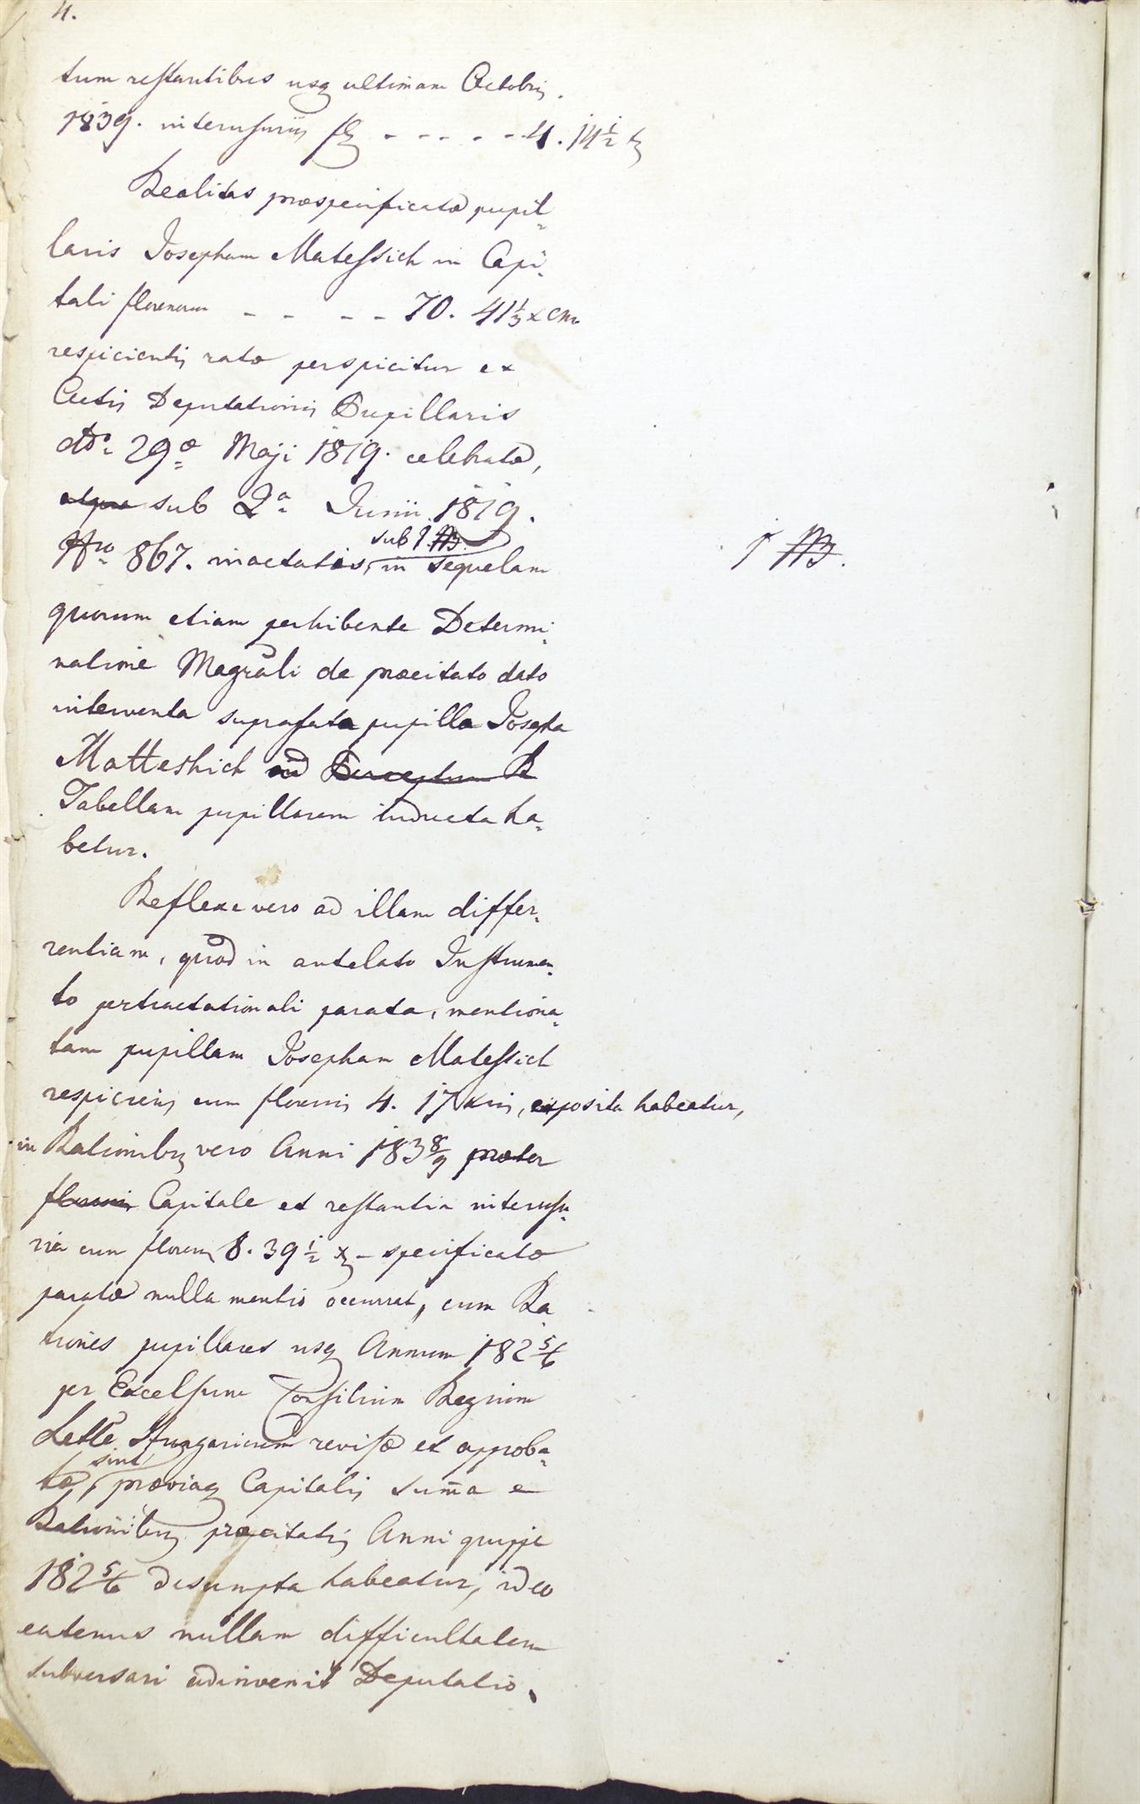 4.
tum restantibus usq ultimam Octobris
1839. interusuriis f - - - - - 4. 14 1/2 x
Realitas praespecificatae pupil-
laris Josepham Matessich in Capi-
tali florenorum - - - - 70. 41 1/3 x cm
respicientis ratae perspicitur ex
Actis Deputationis Pupillaris
dto 29ae Maji 1819. celebratae,
atque sub 2a Junii 1819.
Nro 867. inactatis, in sequelam
sub 1. B.
1 B.
quorum etiam perhibente Determi-
natione Magrali de praecitato dato
interventa suprafata pupilla Josepha
Matteshich ad Perceptum R
Tabellam pupillarem inducta ha-
betur.
Reflexe vero ad illam differ-
rentiam, quod in antelato Instrumen-
to pertractationali parata, mentiona-
tam pupillam Josepham Matessich
respiciens cum florenis 4. 17 xris, exposita habeatur,
in Rationibus vero Anni 1838/9 praeter
florenis Capitale et restantia interusu-
ria cum florenis 8. 39 1/2 x - specificatae
paratae nulla mentio occurrat, cum Ra-
tiones pupillares usq Annum 1825/6
per Excelsum Consilium Regium
Lttle Hungaricum revisae et approba-
tae sint, praeviaq Capitalis suma e
Rationibus praecitatis Anni quippe
1825/6 desumpta habeatur, ideo
eatenus nullam difficultatem
subversari adinvenit Deputatio.